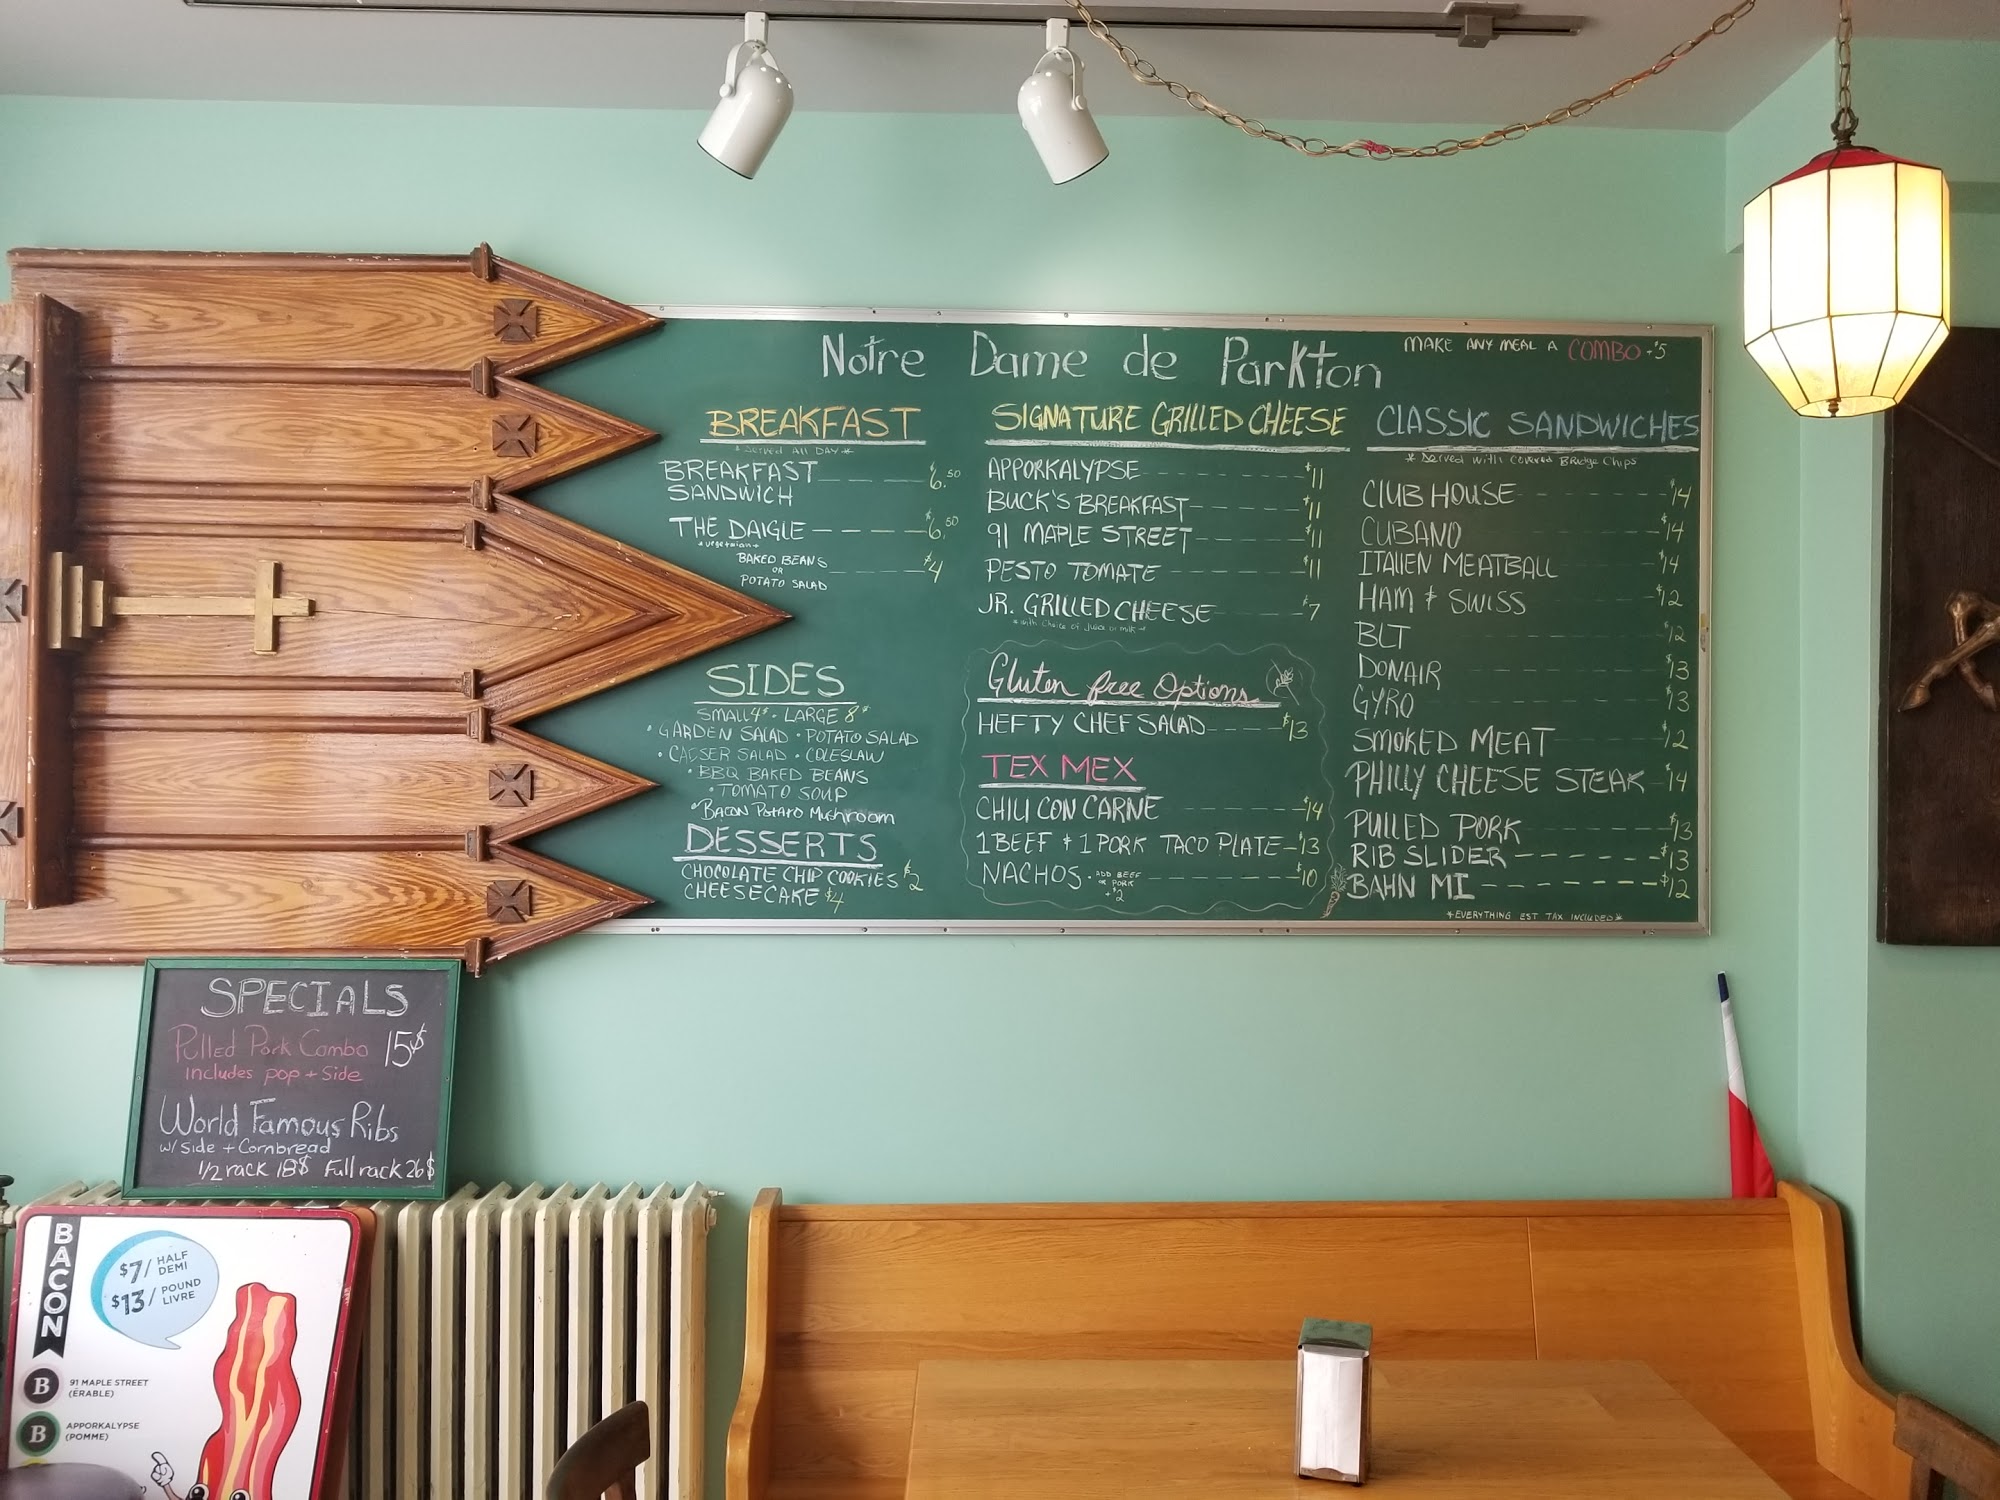 Notre Dame de Parkton
MAKE ANY MEAL A COMBO +$5
BREAKFAST
* SERVED ALL DAY *
BREAKFAST SANDWICH $6.50
THE DAIGLE $6.50
* vegetarian *
BAKED BEANS
OR
POTATO SALAD $4
SIDES
SMALL 4$ · LARGE 8$
· GARDEN SALAD · POTATO SALAD
· CAESER SALAD · COLESLAW
· BBQ BAKED BEANS
· TOMATO SOUP
· BACON POTATO MUSHROOM
DESSERTS
CHOCOLATE CHIP COOKIES $2
CHEESECAKE $4
SIGNATURE GRILLED CHEESE
APPORKALYPSE $11
BUCK'S BREAKFAST $11
91 MAPLE STREET $11
PESTO TOMATE $11
JR. GRILLED CHEESE $7
* with choice of juice or milk *
Gluten free Options
HEFTY CHEF SALAD $13
TEX MEX
CHILI CON CARNE $14
1 BEEF + 1 PORK TACO PLATE $13
NACHOS · ADD BEEF OR PORK +$2 $10
CLASSIC SANDWICHES
* Served with Covered Bridge Chips
CLUB HOUSE $14
CUBANO $14
ITALIEN MEATBALL $14
HAM + SWISS $12
BLT $12
DONAIR $13
GYRO $13
SMOKED MEAT $12
PHILLY CHEESE STEAK $14
PULLED PORK $13
RIB SLIDER $13
BAHN MI $12
*EVERYTHING EST TAX INCLUDED*
SPECIALS
Pulled Pork Combo 15$
includes pop + side
World Famous Ribs
w/ side + Cornbread
1/2 rack 18$ Full rack 26$
BACON
$7/ HALF DEMI
$13/ POUND LIVRE
B 91 MAPLE STREET
(ÉRABLE)
B APPORKALYPSE
(POMME)